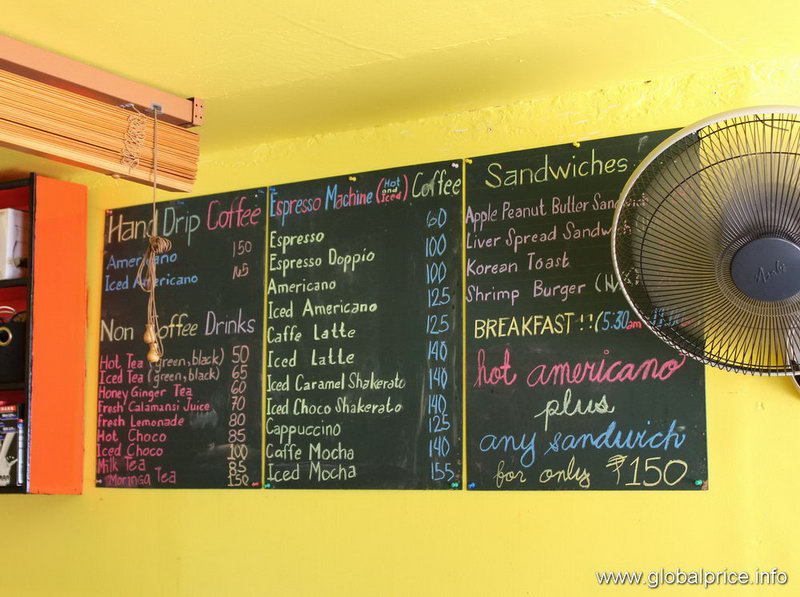 Hand Drip Coffee
Americano 150
Iced Americano
Non Coffee Drinks
Hot Tea (green, black) 50
Iced Tea (green, black) 65
Honey Ginger Tea 60
Fresh Calamansi Juice 70
Fresh Lemonade 80
Hot Choco 85
Iced Choco 100
Milk Tea 85
Moringa Tea 150
Espresso Machine (Hot and Iced) Coffee
Espresso 60
Espresso Doppio 100
Americano 100
Iced Americano 125
Caffe Latte 125
Iced Latte 140
Iced Caramel Shakerato 140
Iced Choco Shakerato 140
Cappuccino 125
Caffe Mocha 140
Iced Mocha 155
Sandwiches
Apple Peanut Butter Sandwich
Liver Spread Sandwich
Korean Toast
Shrimp Burger
BREAKFAST!! (5:30am
hot americano
plus
any sandwich
for only ₱150
www.globalprice.info